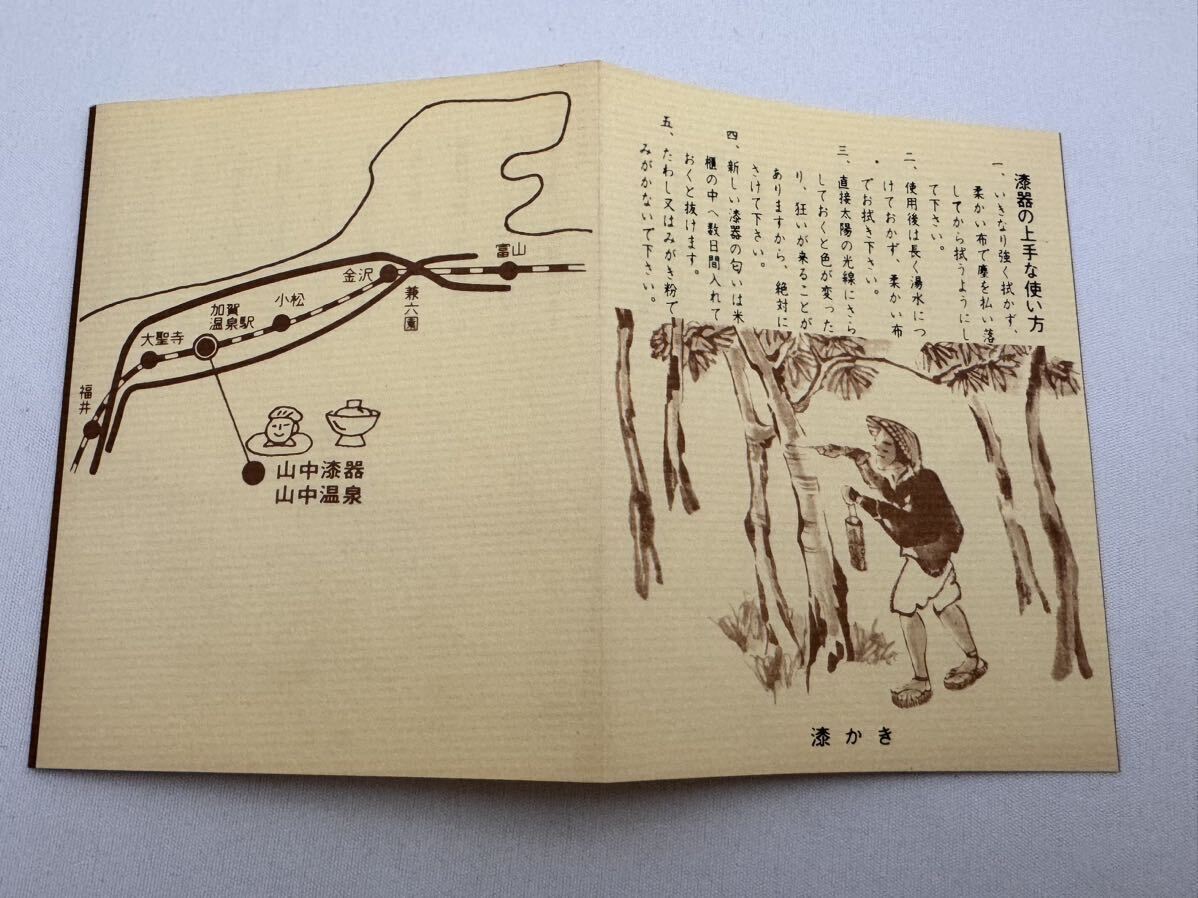 漆器の上手な使い方
一、いきなり強く拭かず、
柔かい布で塵を払い落
してから拭うようにし
て下さい。
二、使用後は長く湯水につ
けておかず、柔かい布
でお拭き下さい。
三、直接太陽の光線にさら
しておくと色が変った
り、狂いが来ることが
ありますから、絶対に
さけて下さい。
四、新しい漆器の匂いは米
櫃の中へ数日間入れて
おくと抜けます。
五、たわし又はみがき粉で
みがかないで下さい。
漆かき
富山
金沢
兼六園
小松
加賀
温泉駅
大聖寺
福井
山中漆器
山中温泉